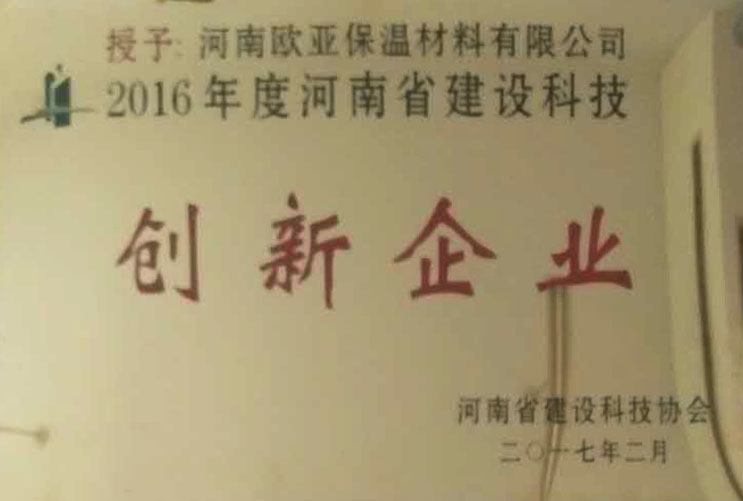 授予:河南欧亚保温材料有限公司
2016年度河南省建设科技
创新企业
河南省建设科技协会
二〇一七年二月